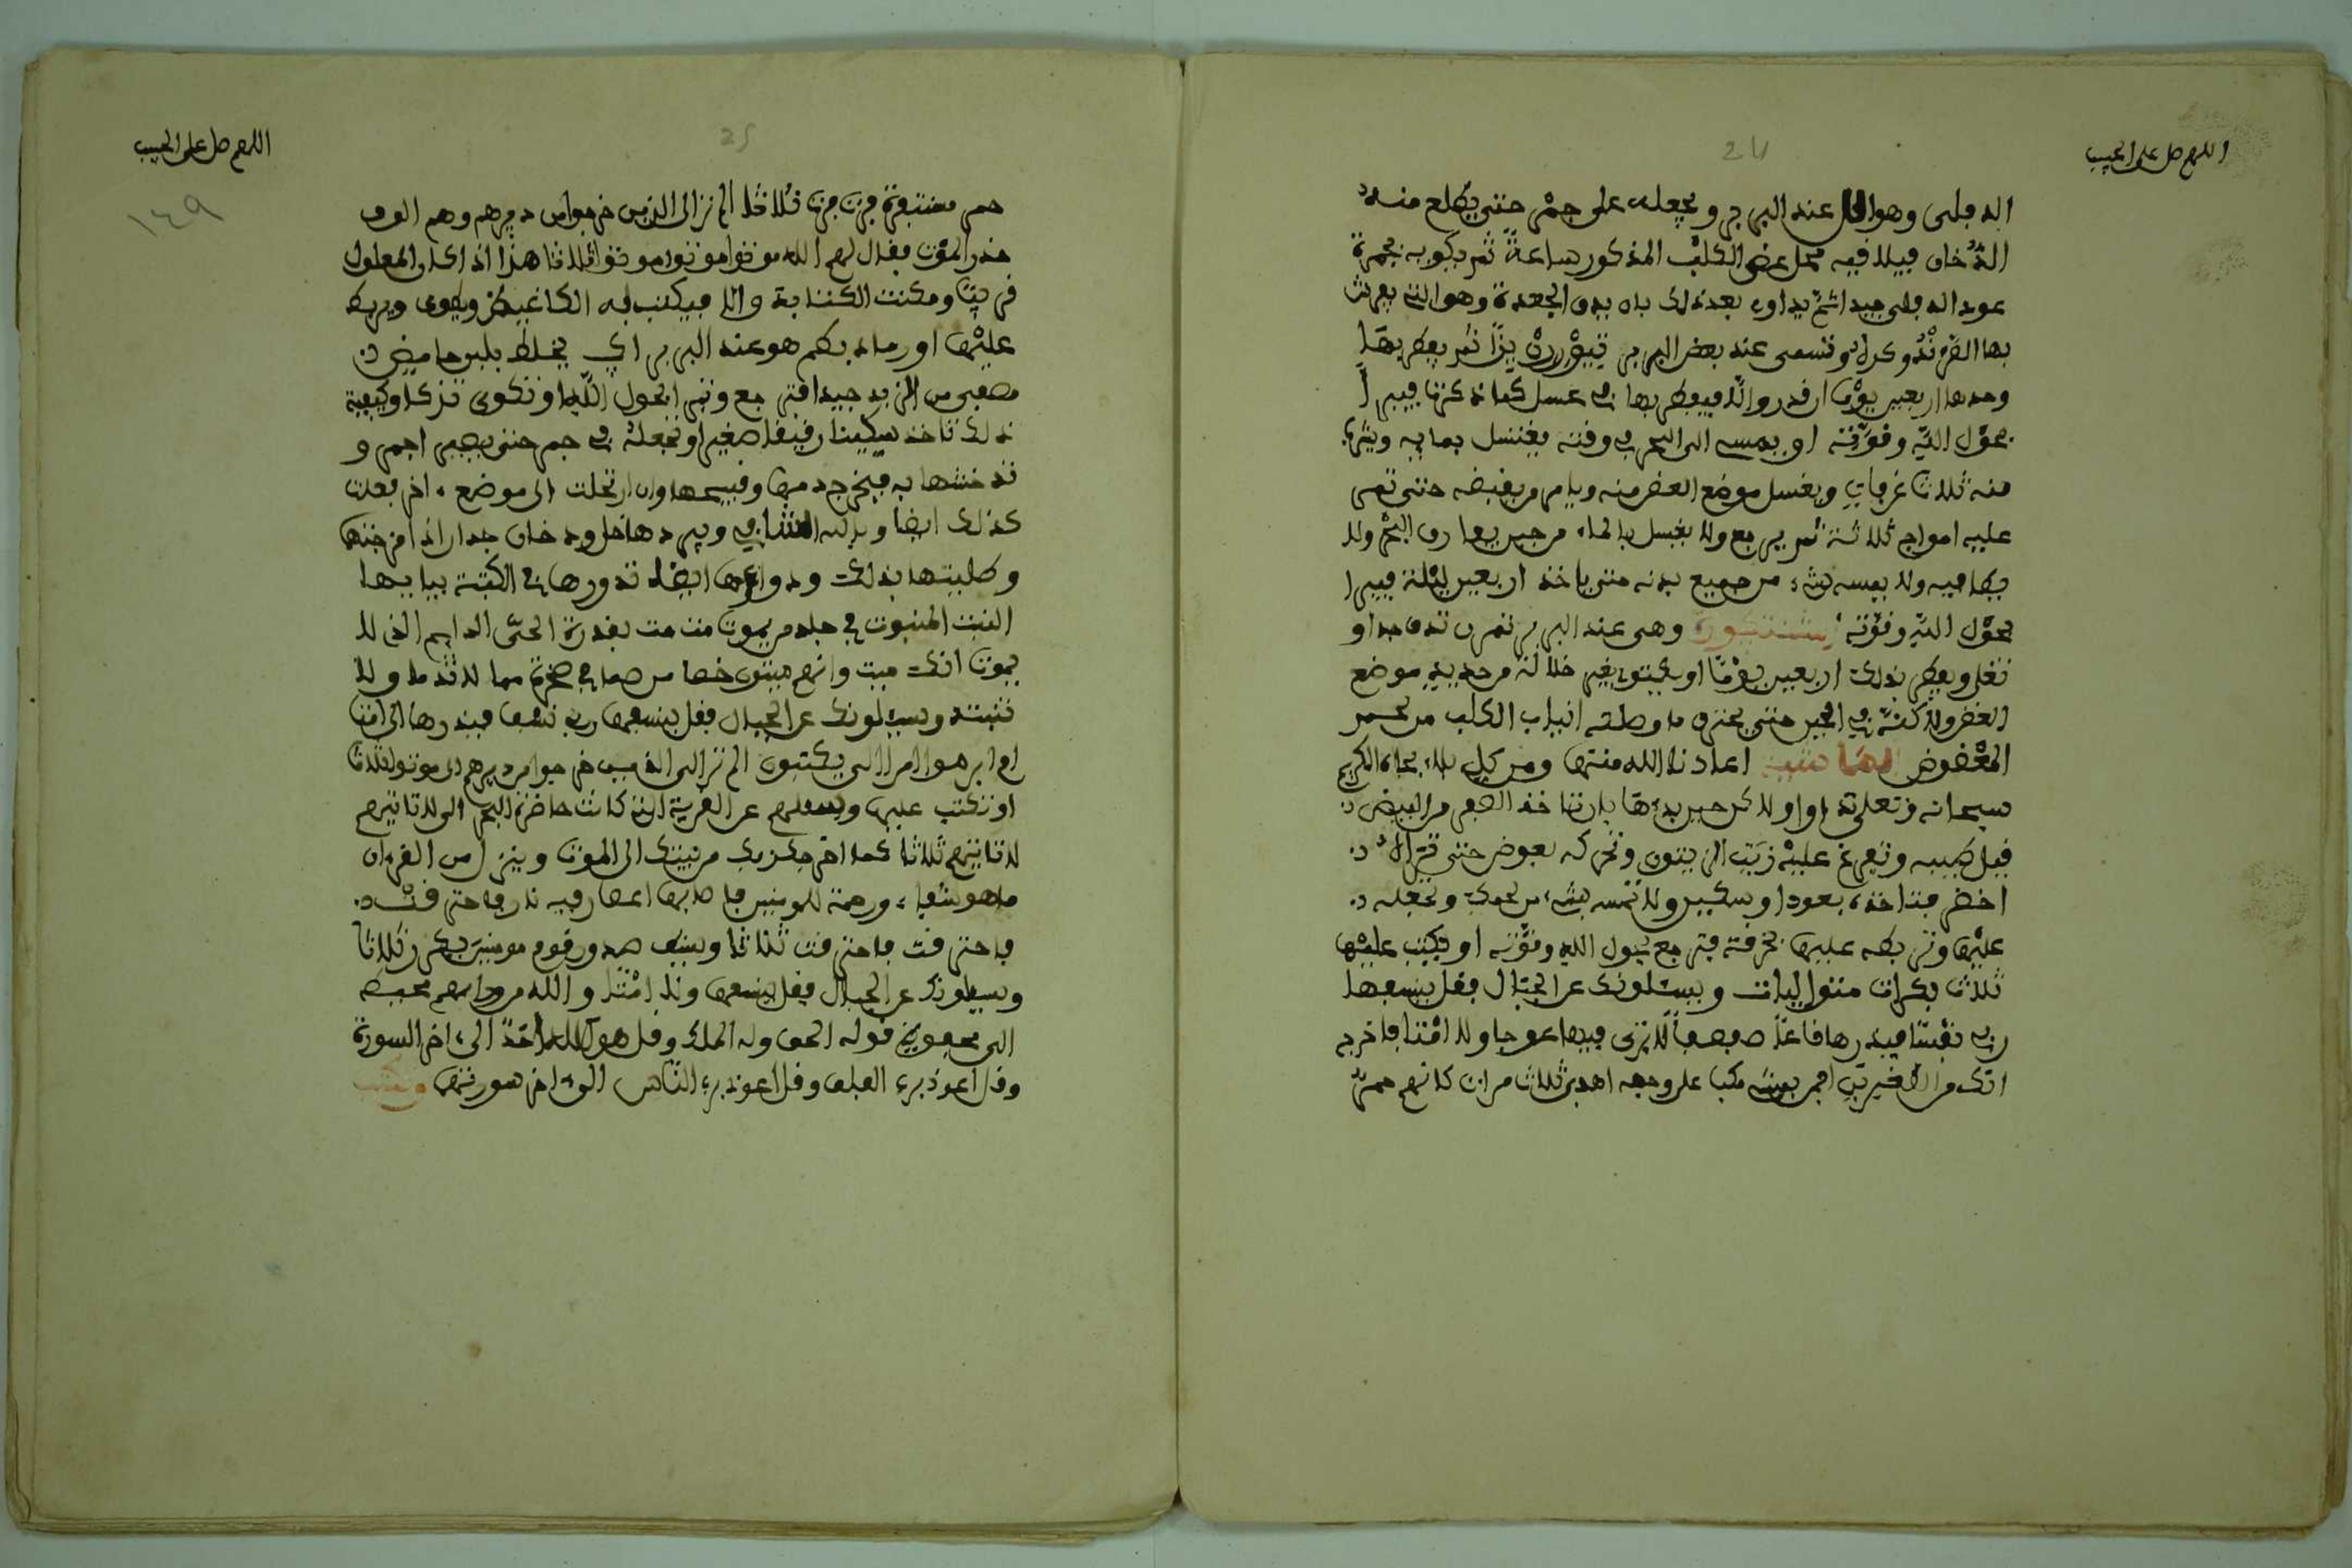 اللهم صل على الحبيب
24
الدفلى وهو عند البربر ويجعله على جمر حتى يطلع منه
الدُّخان فيلا فيه محل عض الكلب المذكور ساعةً ثم يكويه بجمرة
عود الدفلى جيدا ثم يداوه بعد ذلك بان يدق الجعدة وهو التي يعرفت
بها القرنْدُ وكراد وتسمى عند بعض البربر ثم يفطر بها
وحدها اربعين يوْمًا ان قدر والّا فيفطر بها في عسل كما ذكرنا فيبرأ
بحَوْل اللّه وقوّته او يمسه الى البحر في وقته يغتسل بمايه ويشرب
منه ثلاث غرفات ويغسل موضع العض منه ويامر من يقبضه حتى تمر
عليه امواج ثلاثة ثم يرجع ولا يغسل بالماء من حين يفارق البحْر ولا
يطا فيه ولا يمسه شيء من جميع بدنه حتى ياخذ اربعين ليْلة فيبرا
بحَوْل اللّه وقوّته وهى عند البربر تمرن تدق جدا و
تغلى ويفطر بذلك اربعين يوْمًا او بغير خلالة من حديد موضع
العض ولذكته في الحين حتى يحترق ما وطئه انياب الكلب من لحم
المعْضوض اعاذنا الله منها ومن كل بلاء بجاه الكريم
سبحانه وتعلى دواء اولا كن حين بدءها بان تاخذ الصفر من البيض
قبل طيبه وتفرغ عليْه زيت الزيتون وتحركه بعوض حتى ترى
اخضر فتاخذه بعود او سكين ولا تمسه بشيء من لحمك وتجعله
عليْها وتربطه عليها بخرقة فتر جع بحول الله وقوّته او تكتب عليْها
ثلاث بكرات متواليات ويسئلونك عن الجبال فقل ينسفها
ربي نسفا فيذرها قاعًا صفصفًا لّا ترى فيها عوجا ولا امْتا فاخرج
انك من الصّغيرين افمن يمشى مكبا على وجهه اهدى ثلاث مرات كانهم حمرٌ
اللهم صل على الحبيب
25
١٤٩
حمر مستنفرة فرت فرت ثلاثا الم تر الى الذين خرجوا من ديرهم وهم الوف
حذر الموْت فقال لهم الله موتوا موتوا موتوا ثلاثا هذا اذا كان المعلول
قريبًا ومكنت الكتابة والا فيكتب له الكاغيد ويطوى ويربط
عليْها او رماد بكم هو عند البربر اي يخلط بلبن حامض
مصفى من الزبد جيدا فترجع وتبرا بحول اللّه او تكوى تزكا وكيفية
ذلك تاخذ سكينا رقيقا صغيرا وتجعله في جمر حتى يصير احمر و
تدخشها به فيخرج دمها وقيحها وان ارتحلت الى موضع ءاخر فعلت
كذلك ايضا ويزله النشابي ويبردها خل ودخان جدار اذا مزجتها
وطليتها بذلك ودواؤها ايضا تدورها في الكتبة بيابها
النبت المنبوت في جلد من يموت مت مت بقدرة الحيّ الدايم الذى لا
يموت انك ميت وانهم ميتون خصا من صما في صخرة صما لا تدما ولا
تنبت ويسئلونك عن الجبال فقل ينسفها ربي نسفا فيذرها الى امتا
ام ابرموا امرا الى يكتبون الم تر الى الذين خرجوا من ديرهم الى موتوا ثلاثا
او تكتب عليها وسئلهم عن القرية التى كانت حاضرة البحر الى لا تاتيهم
لا تاتيهم ثلاثا كما اخرجك ربك من بيتك الى الموت وننزل من القرءان
ما هو شفاء ورحمة للمومنين فاصابها اعصار فيه نار فاحترقت
فاحترقت فاحترقت ثلاثا ويشف صدور قوم مومنين بكر ثلاثا
ويسئلونك عن الجبال فقل ينسفها ولا امْتًا والله من وراءهم محيط
الى محفوظ قوله الحق وله الملك وقل هو الله احد الى ءاخر السورة
وقل اعوذ برب الفلق وقل اعوذ برب النّاس الى ءاخر سورتها وتكتب